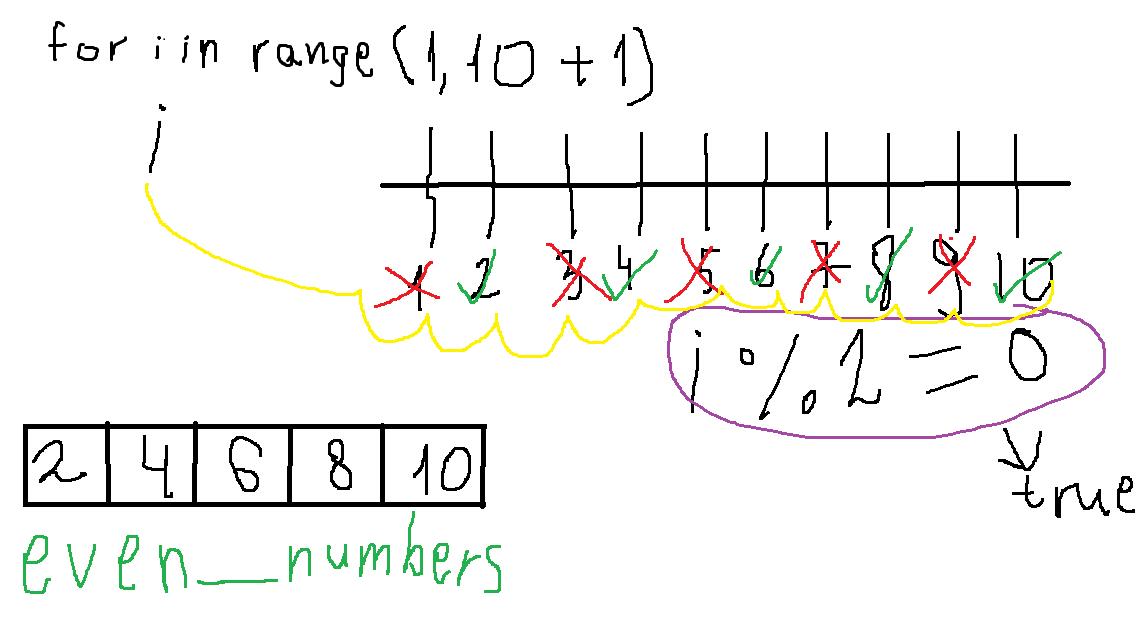 for i in range (1, 10 + 1)
i
1 2 3 4 5 6 7 8 9 10
i % 2 = 0
true
2 4 6 8 10
even_numbers